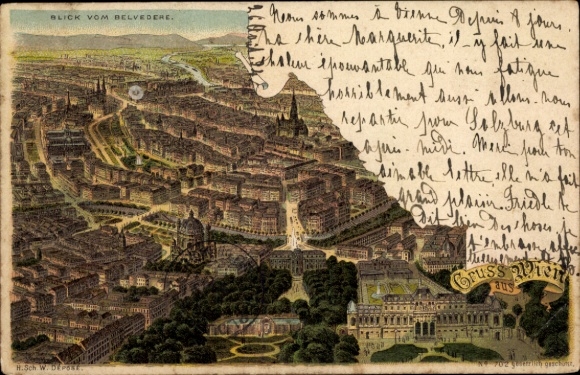 BLICK VOM BELVEDERE.
Nous sommes à Vienne Depuis 8 jours.
Ma chère Marguerite, il y fait une
chaleur épouvantable qui nous fatigue
horriblement aussi allons-nous
repartir pour Salzburg cet
après-midi. Merci pour ton
aimable lettre elle m'a fait
grand plaisir Friedl te
dit bien des choses, je
t'embrasse
Gruss aus Wien
H. Sch W. DEPOSÉ.
No 702 gesetzlich geschützt.